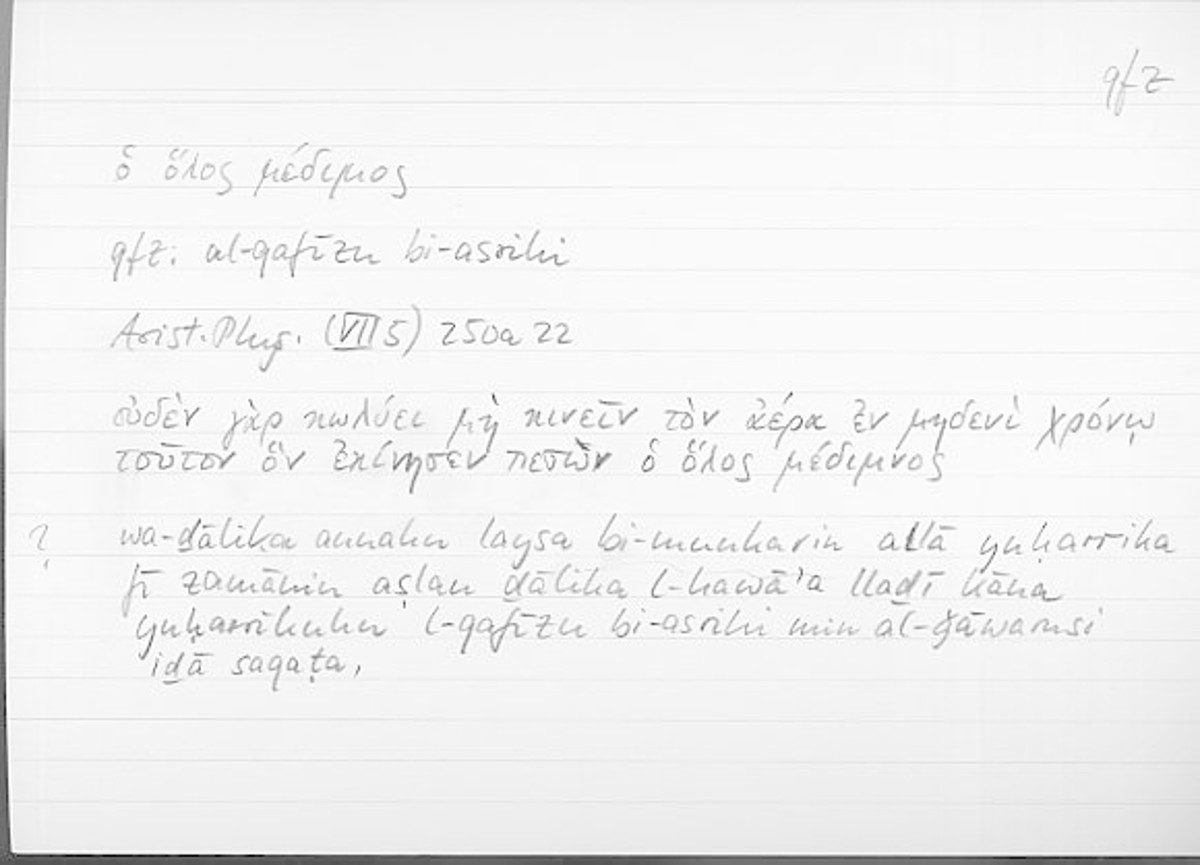 qfz
ὁ ὅλος μέδιμος
qfz: al-qafīzu bi-asrihi
Arist. Phys. (VII 5) 250a 22
οὐδὲν γὰρ κωλύει μὴ κινεῖν τὸν ἀέρα ἐν μηδενὶ χρόνῳ
τοῦτον ὃν ἐκίνησεν πεσὼν ὁ ὅλος μέδιμνος
? wa-ḏālika annahu laysa bi-munkarin allā yuḥarrika
fī zamānin aṣlan ḏālika l-hawāʾa llaḏī kāna
yuḥarrikuhu l-qafīzu bi-asrihi min al-ǧāwarsi
iḏā saqaṭa.